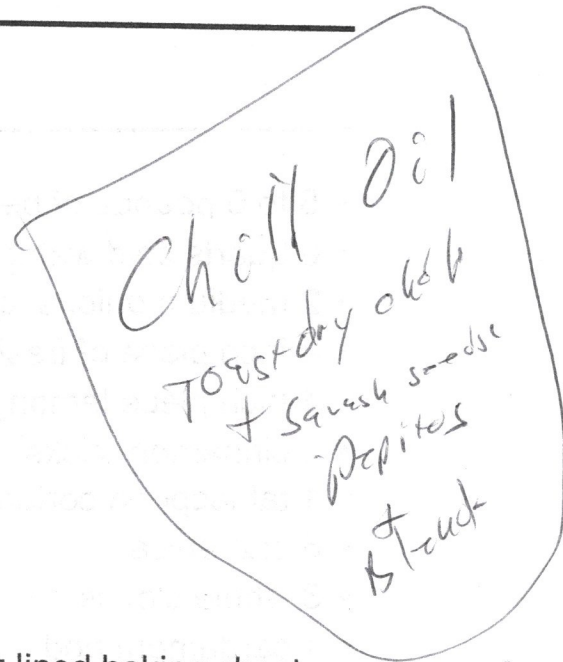 Chili Oil
Toast dry
+ squash seeds
Pepitos
+
Blend
lined baking sheet